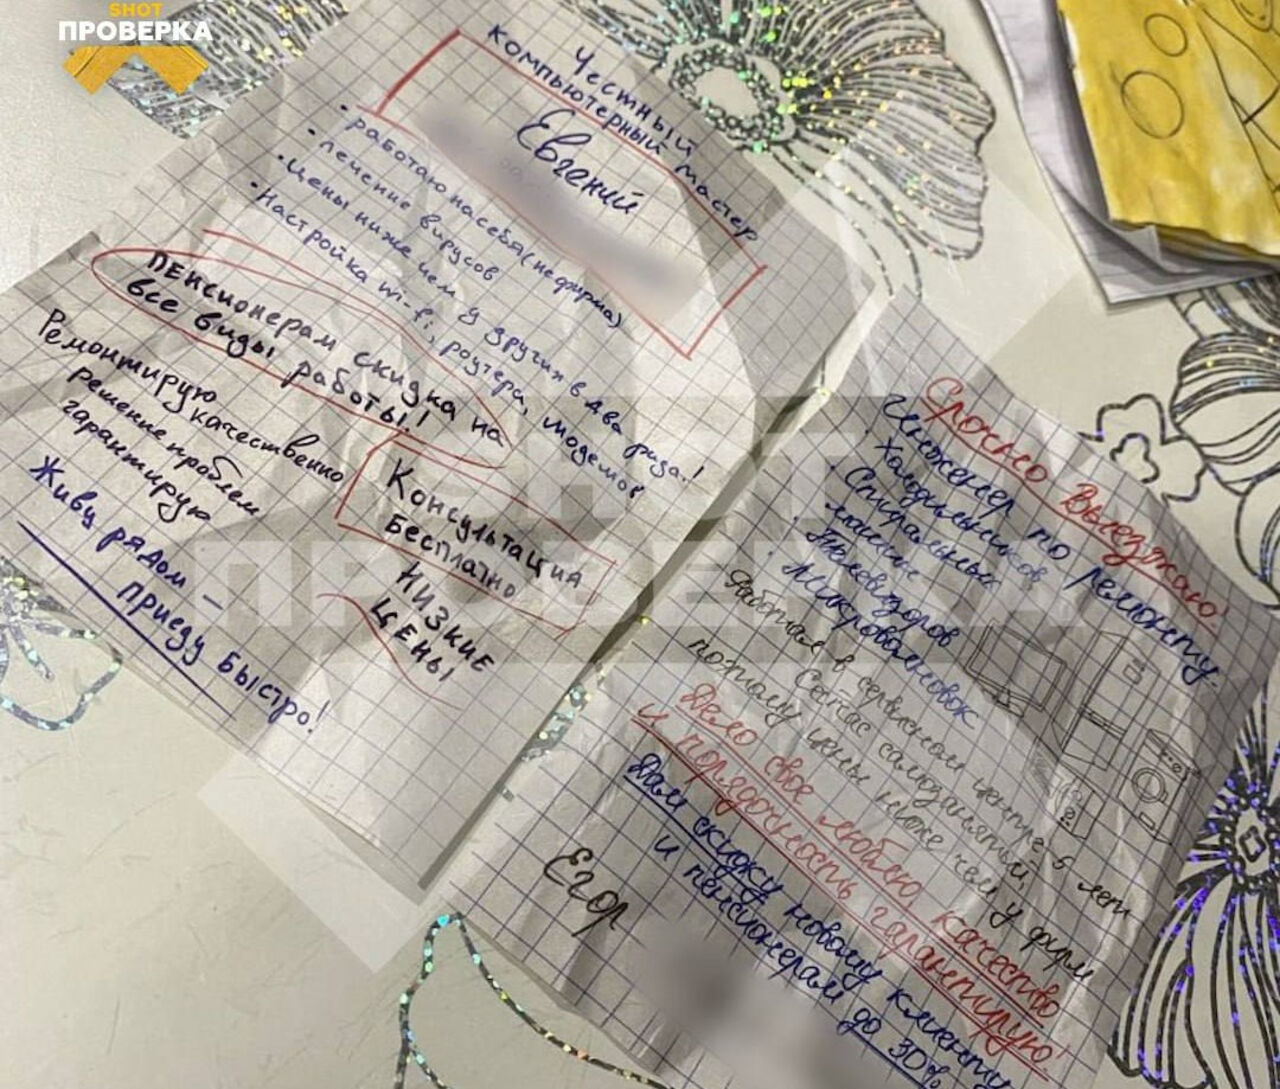 SHOT
ПРОВЕРКА
Честный
компьютерный мастер
Евгений
· работаю на себя (не фирма)
· лечение вирусов
· Цены ниже чем у других в два раза!
· Настройка wi-fi, роутера, модемов
Пенсионерам скидка на
все виды работы!!
Ремонтирую
качественно
решение проблем
гарантирую
Консультация
бесплатно
Живу рядом –
приеду быстро!
НИЗКИЕ
ЦЕНЫ
Срочно Выезжаю
Инженер по ремонту
· Холодильников
· Стиральных
машин
· Телевизоров
· Микроволновок
Работал в сервисном центре 6 лет
Сейчас самозанятый,
потому цены ниже чем у фирм
Дело свое люблю качество
и порядочность гарантирую!
Дам скидку новому клиенту
и пенсионерам до 30%
Егор
SHOT
ПРОВЕРКА